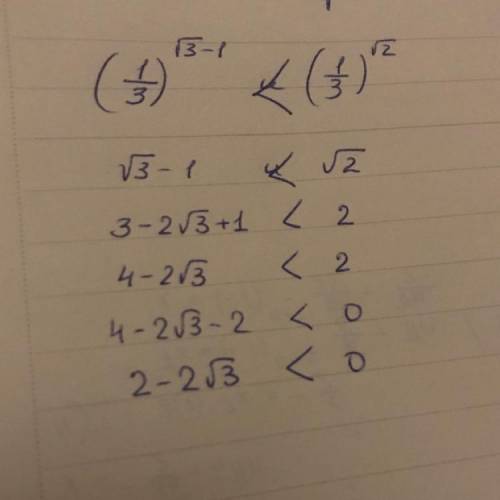 (1/3)^(√3-1) < (1/3)^√2
√3-1 < √2
3-2√3+1 < 2
4-2√3 < 2
4-2√3-2 < 0
2-2√3 < 0